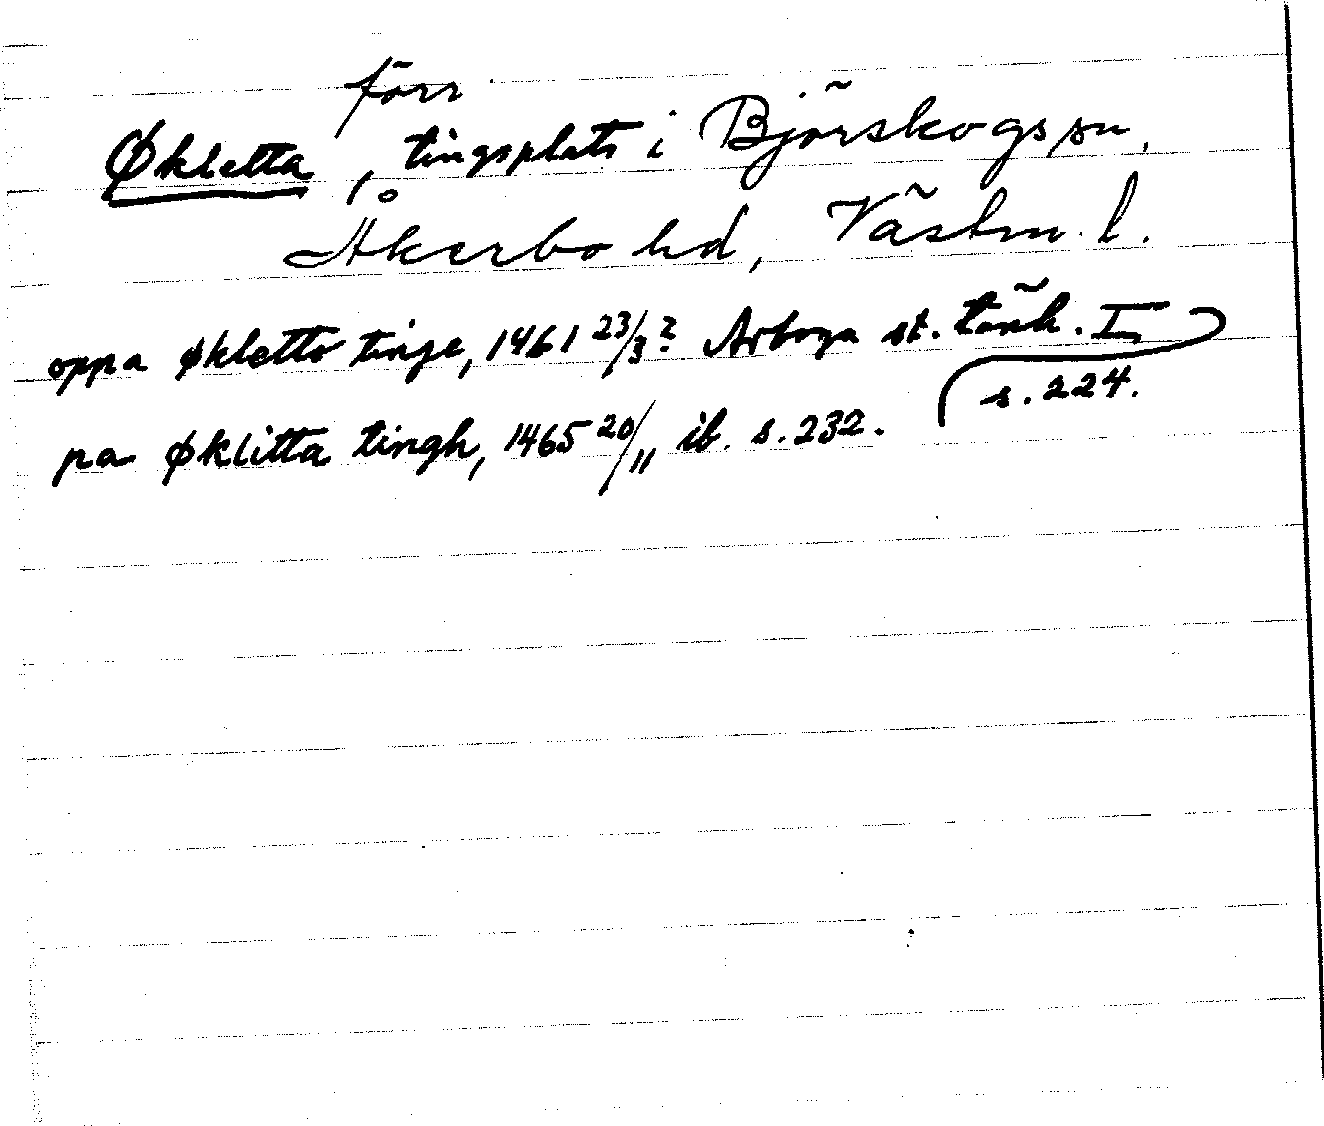 förr
Økletta, tingsplats i Björskogs sn,
Åkerbo hd, Västm. l.
oppa økletto tinge, 1461 23/3? Arboga st. tänk. I
s. 224.
pa Øklitta tingh, 1465 20/11 ib. s. 232.